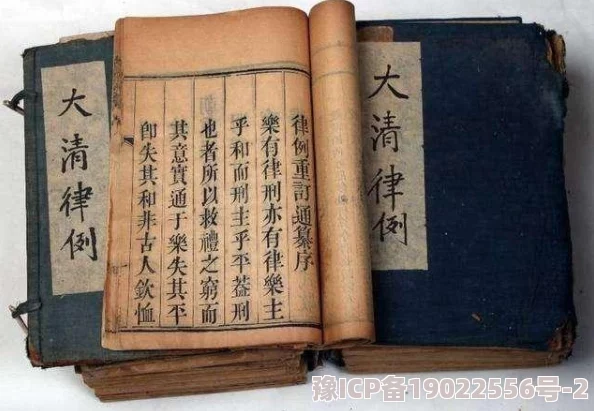 大清律例
律例重訂通纂序
樂有律刑亦有律樂主
乎和而刑主乎平蓋刑
也者所以救禮之窮而
其意實通于樂失其平
卽失其和非古人欽恤
大清律例
豫ICP备19022556号-2